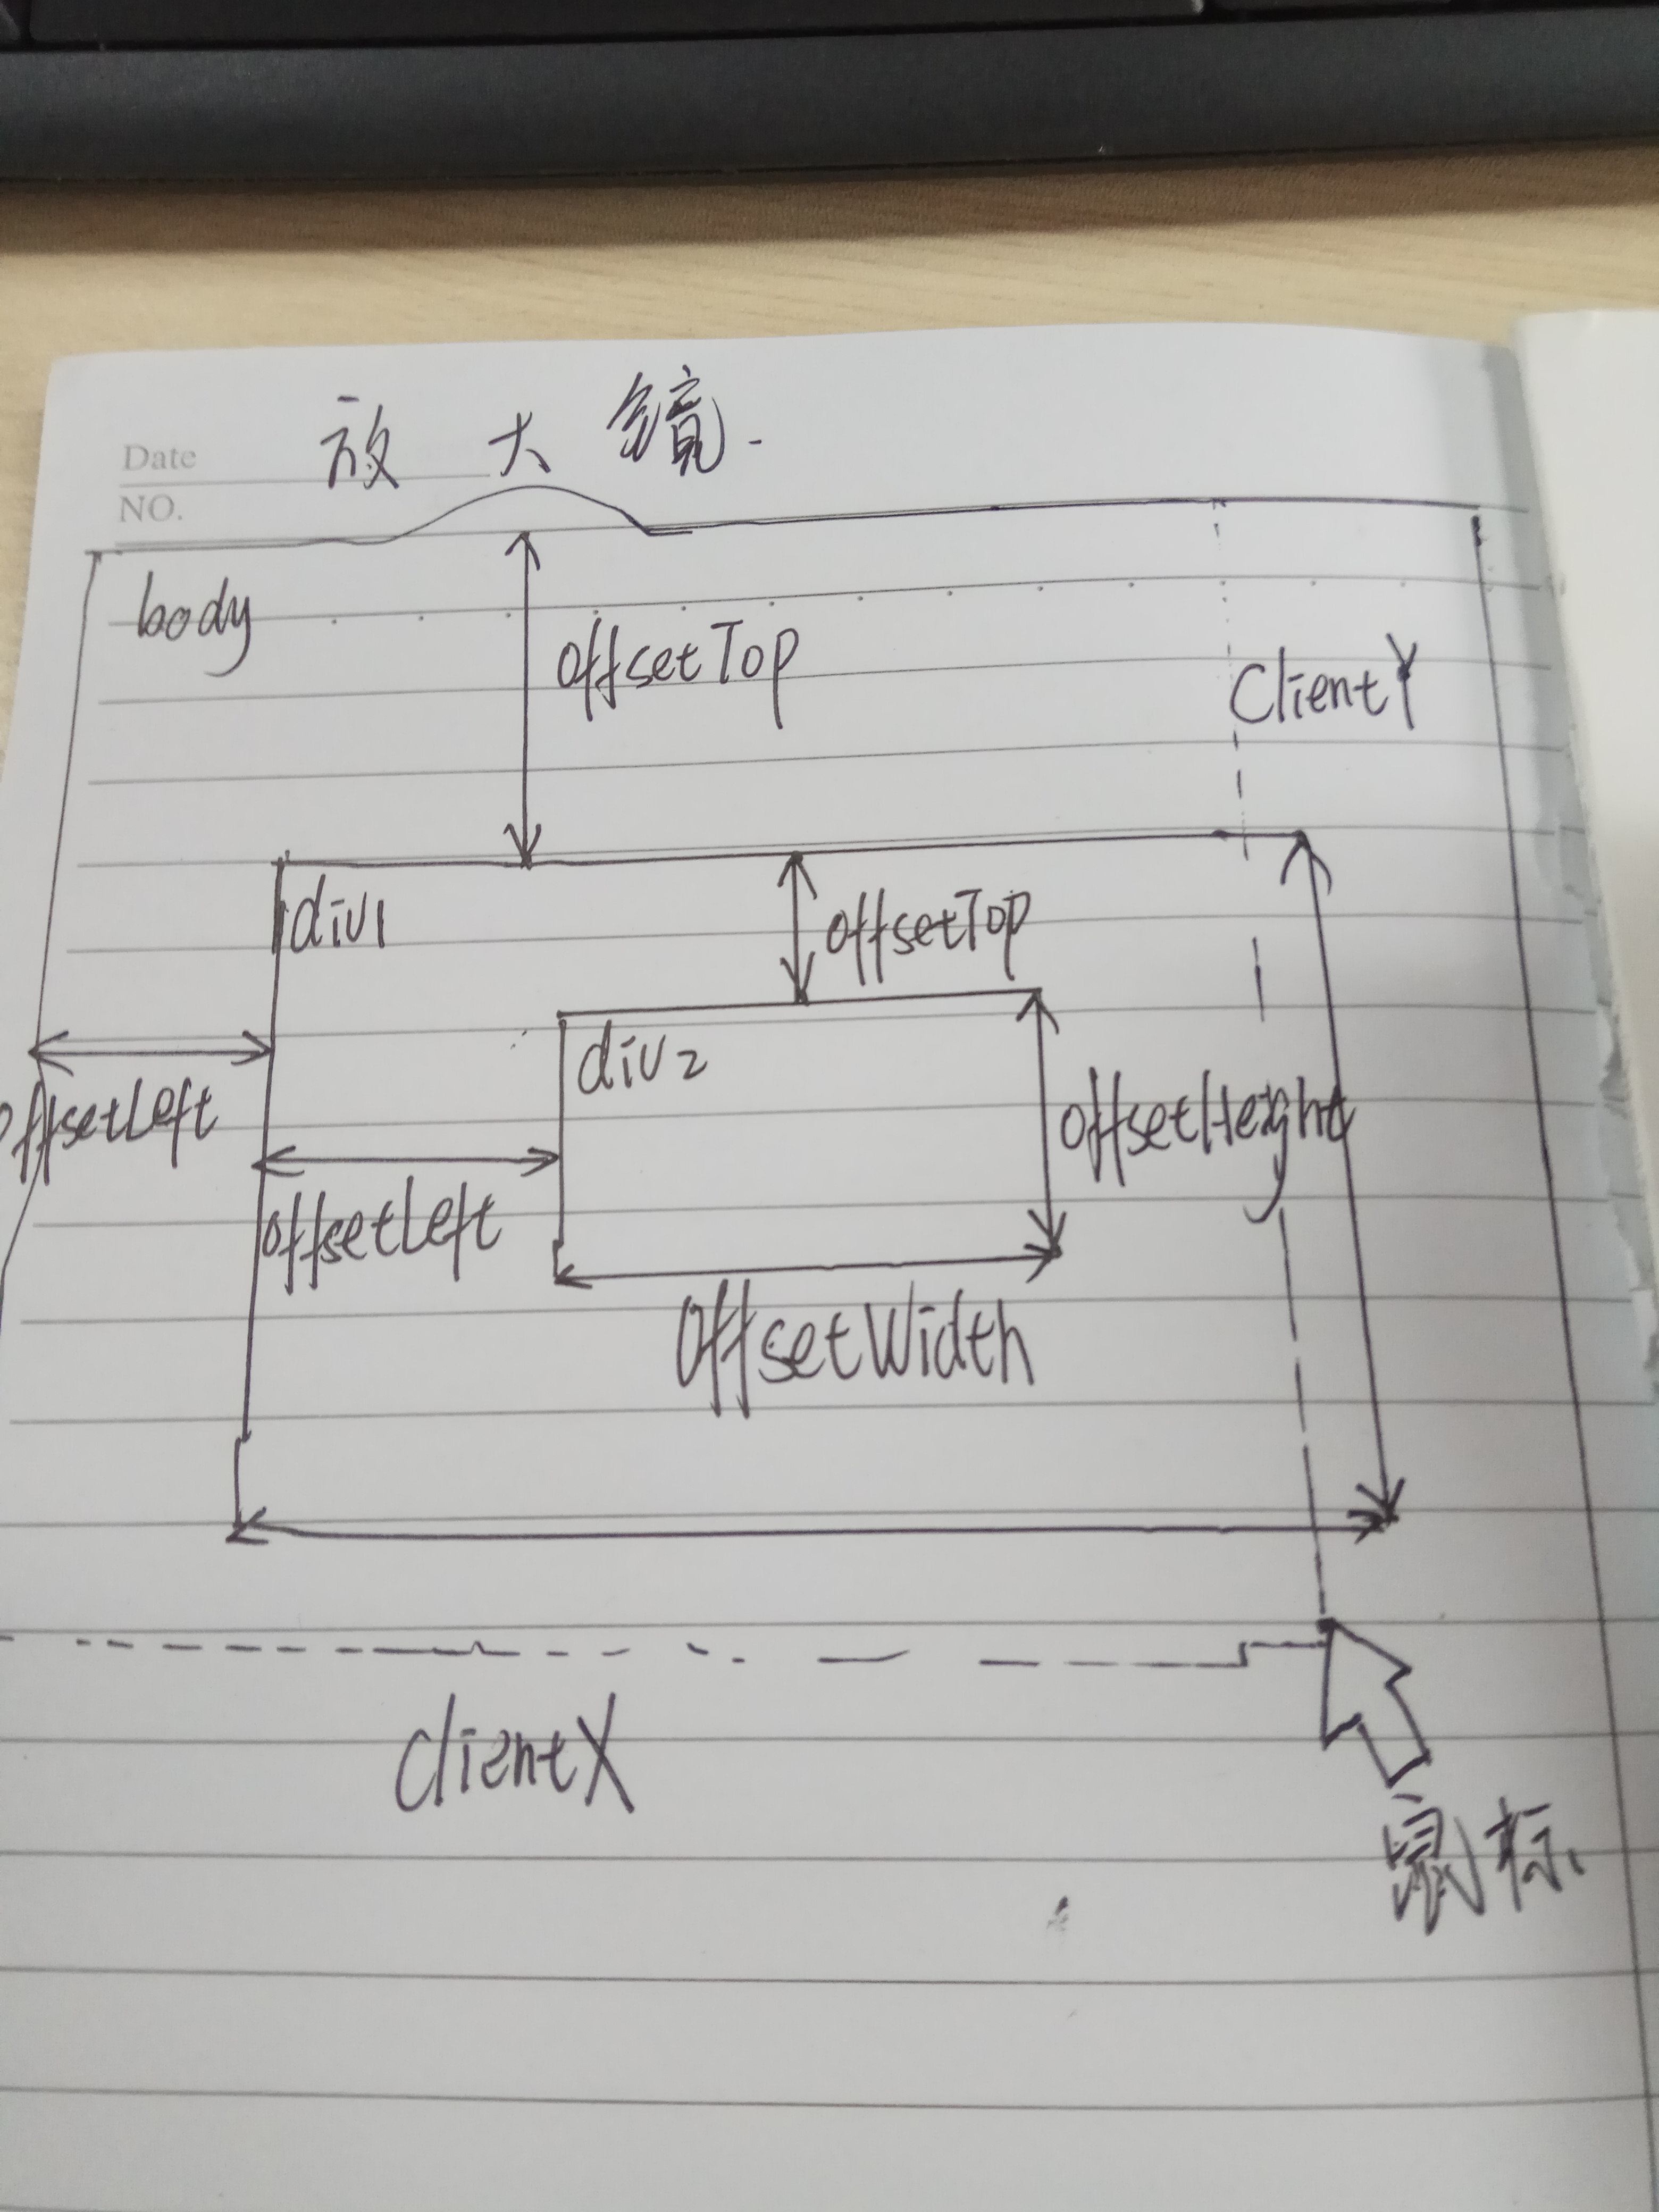 放大镜.
Date
NO.
body
offsetTop
ClientY
div1
offsetTop
div2
offsetLeft
offsetHeight
offsetLeft
offsetWidth
clientX
鼠标